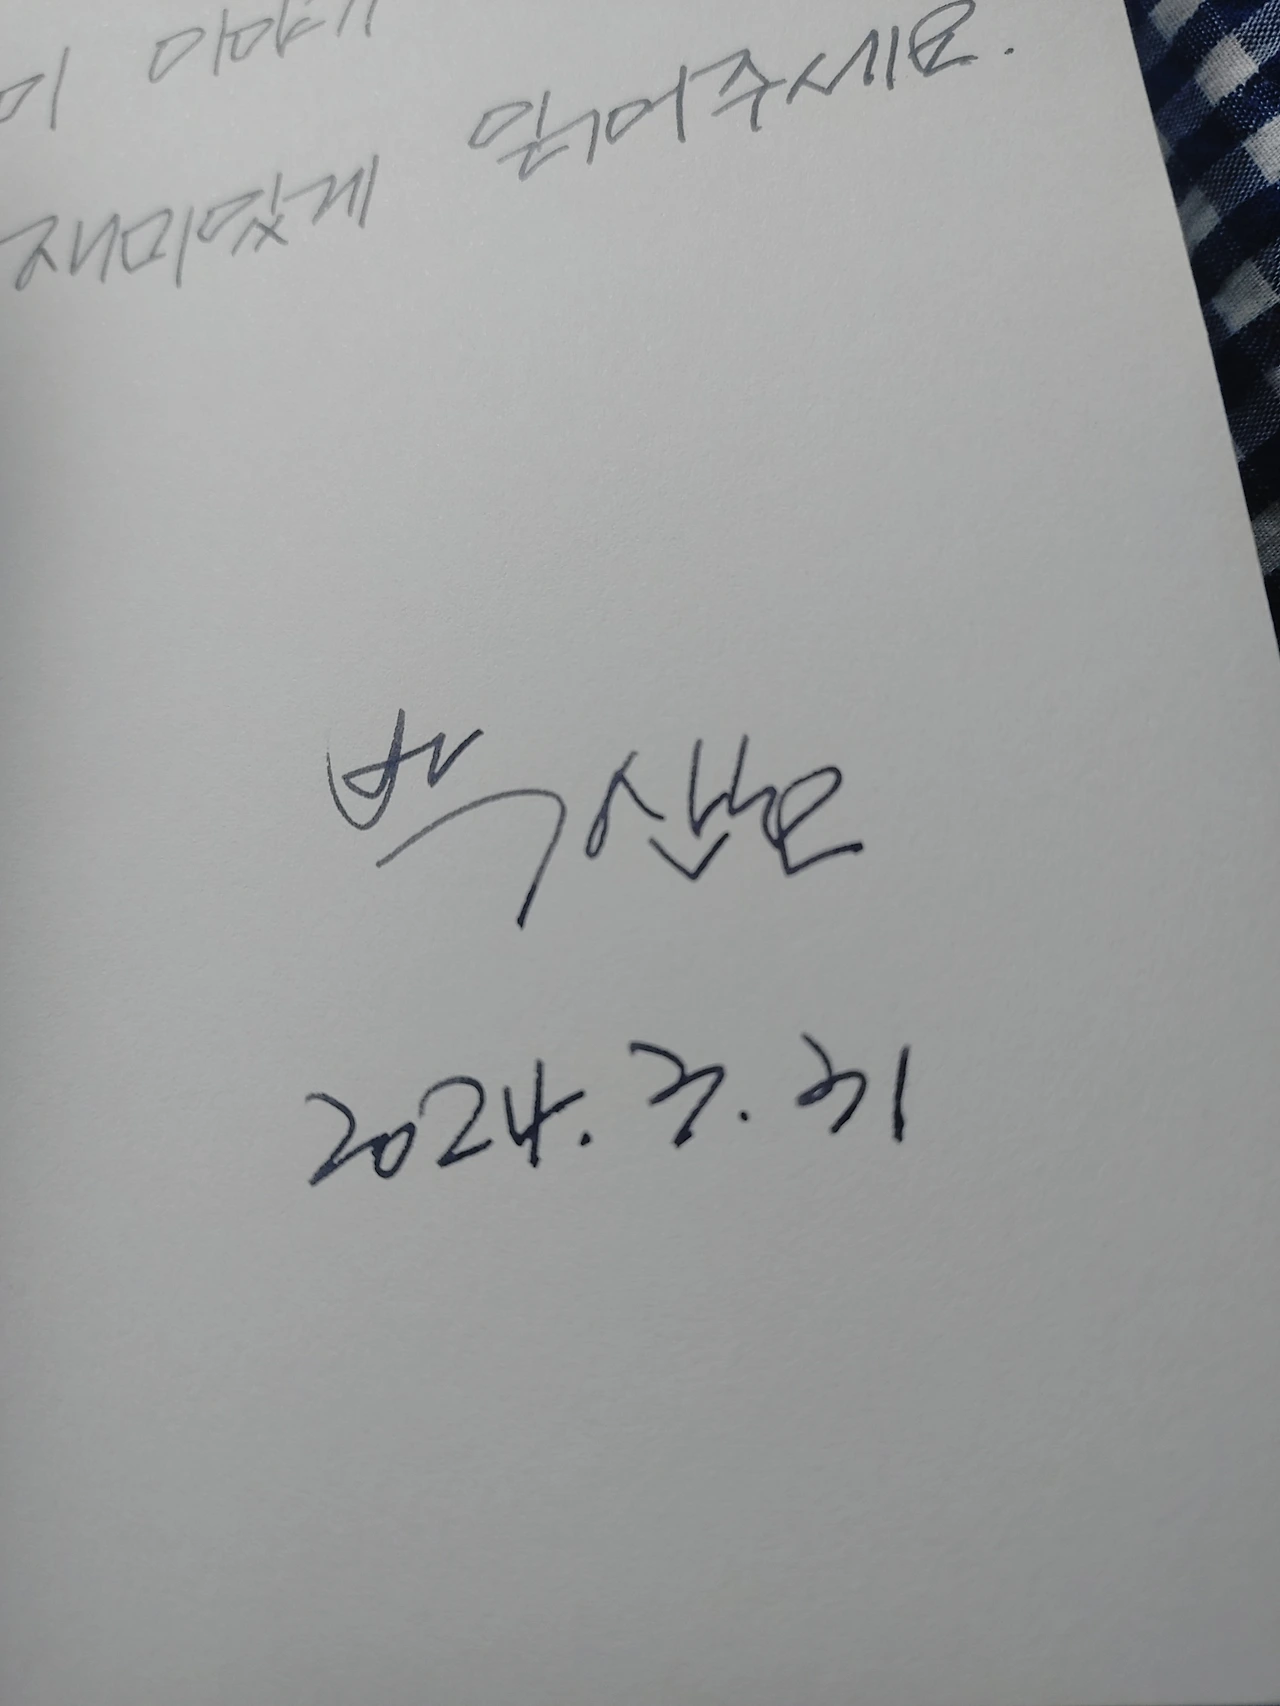 이 이야기
재미있게 읽어주세요.
박산호
2024. 3. 31